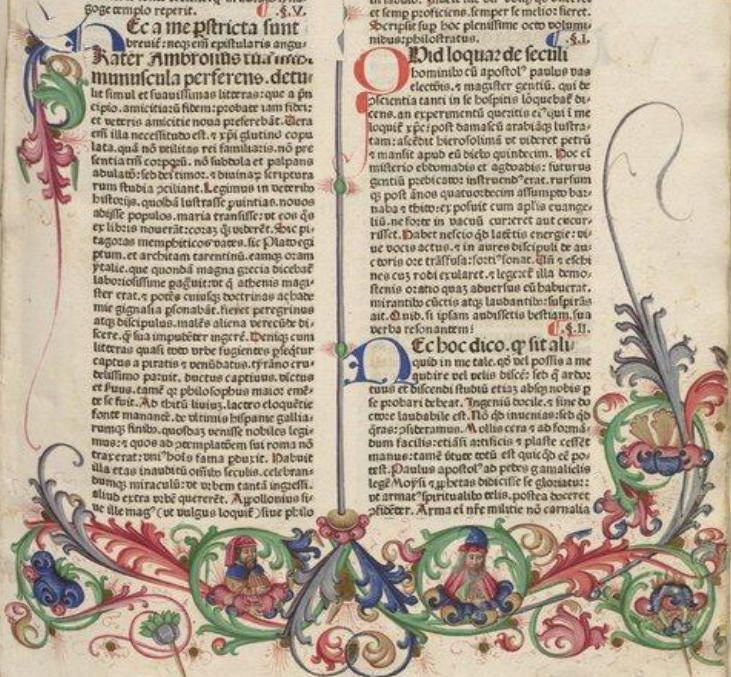 goge templo reperit. ¶.§.V.
Ec a me pſtricta ſunt
breuit̉: neqꝫ em̄ epiſtularis angu⸗
Frater Ambroſius tua
munuſcula perferens. detu⸗
lit ſimul et ſuauiſſimas litteras: que a p̄n
cipio. amicitiarū fidem: probate iam fidei:
et veteris amicitie noua preferebāt. Uera
em̄ illa neceſſitudo eſt. ⁊ xp̄i glutino copu
lata. quā nō vtilitas rei familiaris. nō pre
ſentia tm̄ corpoꝝ. nō ſubdola et palpans
adulatō: ſed dei timor. ⁊ diuinaꝝ ſcriptura
rum ſtudia ꝯciliant. Legimus in veteribꝰ
hiſtorijs. quoſdā luſtraſſe ꝓuintias. nouos
adiſſe populos. maria tranſiſſe: vt eos q̄s
ex libris nouerāt: corāꝫ q̄ꝫ viderēt. Sic pi⸗
tagoras memphiticos vates. ſic Plato egi
ptum. et architam tarentinū. eamqꝫ oram
ytalie. que quondā magna grecia dicebat̉
laborioſiſſime ꝑagͣuit: vt q̄ athenis magi⸗
ſter erat. ⁊ potēs cuiuſqꝫ doctrinas achade
mie gignaſia ꝑſonabāt. fieret peregrinus
atqꝫ diſcipulus. malēs aliena verecūde di⸗
ſcere. q̄ꝫ ſua impudēter ingerē. Deniqꝫ cum
litteras quaſi toto orbe fugientes ꝑſeq̄tur
captus a piratis ⁊ venūdatus. tyrāno cru⸗
deliſſimo paruit. ductus captiuus. victus
et ſeruus. tamē qꝫ philoſophus maior emē⸗
te ſe fuit. Ad thitū liuiuꝫ. lacteo eloquētie
fonte manantē. de vltimis hiſpanie gallia⸗
rumqꝫ finibꝰ. quoſdaꝫ veniſſe nobiles legi⸗
mus: ⁊ quos ad ꝯtemplatōem ſui roma nō
traxerat: vniꝰ hoīs fama ꝑduxit. Habuit
illa etas inauditū oīnibꝰ ſeculis. celebran⸗
dumqꝫ miraculū: vt vrbem tantā ingreſſi.
aliud extra vrbē quererēt. Appollonius ſi⸗
ue ille magꝰ (vt vulgus loquit̉) ſiue philo
et ſemp̱ proficiens. ſemper ſe melior fieret.
Scripſit ſup̱ hoc pleniſſime octo volumi⸗
nibus: philoſtratus. ¶.§.I.
Quid loquar de ſeculi
hominibꝰ cū apoſtolꝰ paulus vas
electōis. ⁊ magiſter gentiū. qui de
ꝯſcientia tanti in ſe hoſpitis loquebat̉ di⸗
cens. an experimentū queritis eiꝰ qui ī me
loquit̉ xp̄s: poſt damaſcū arabiāqꝫ luſtra⸗
tam: aſcēdit hieroſolimā vt videret petrū
⁊ manſit apud eū diebꝰ quindecim. Hoc em̄
miſterio ebdomadis et ogdoadis: futurus
gentiū predicator inſtruēdꝰ erat. rurſum
qꝫ poſt ānos quatuordecim aſſumpto bar⸗
naba ⁊ thito: expoſuit cum apl̄is euange⸗
liū. ne forte in vacuū curreret aut cucur⸗
riſſet. Habet neſcio qd̓ latētis energie: vi⸗
ue vocis actus. ⁊ in aures diſcipuli de auc⸗
ctoris ore trāſfuſa: fortiꝰ ſonat. Un̄ ⁊ eſchi
nes cuꝫ rodi exularet. ⁊ legeret̉ illa demo⸗
ſtenis oratio quaꝫ aduerſus eū habuerat.
mirantibꝰ cūctis atqꝫ laudantibꝰ: ſuſpirās
ait. Quid. ſi ipſam audiſſetis beſtiam. ſua
verba reſonantem: ¶.§.II.
Nec hoc dico. q̓ ſit ali
quid in me tale. qd̓ vel poſſis a me
audire vel velis diſcē: ſed q̓ ardor
tuus et diſcendi ſtudiū etiaꝫ abſqꝫ nobis p̱
ſe probari debeat. Ingeniū docile. ⁊ ſine do
ctore laudabile eſt. Nō qd̓ inuenias: ſed qd̓
q̄ras: ꝯſideramus. Mollis cera ⁊ ad forma⸗
dum facilis: etiāſi artificis ⁊ plaſte ceſſēt
manus: tamē v̓tute totū eſt quicqd̓ eē po⸗
teſt. Paulus apoſtolꝰ ad pedes gamalielis
legē Moyſi ⁊ ꝓphetas didiciſſe ſe gloriatur:
vt armatꝰ ſpiritualibꝰ telis. poſtea doceret
ꝯfidēter. Arma em̄ nr̄e militie nō carnalia